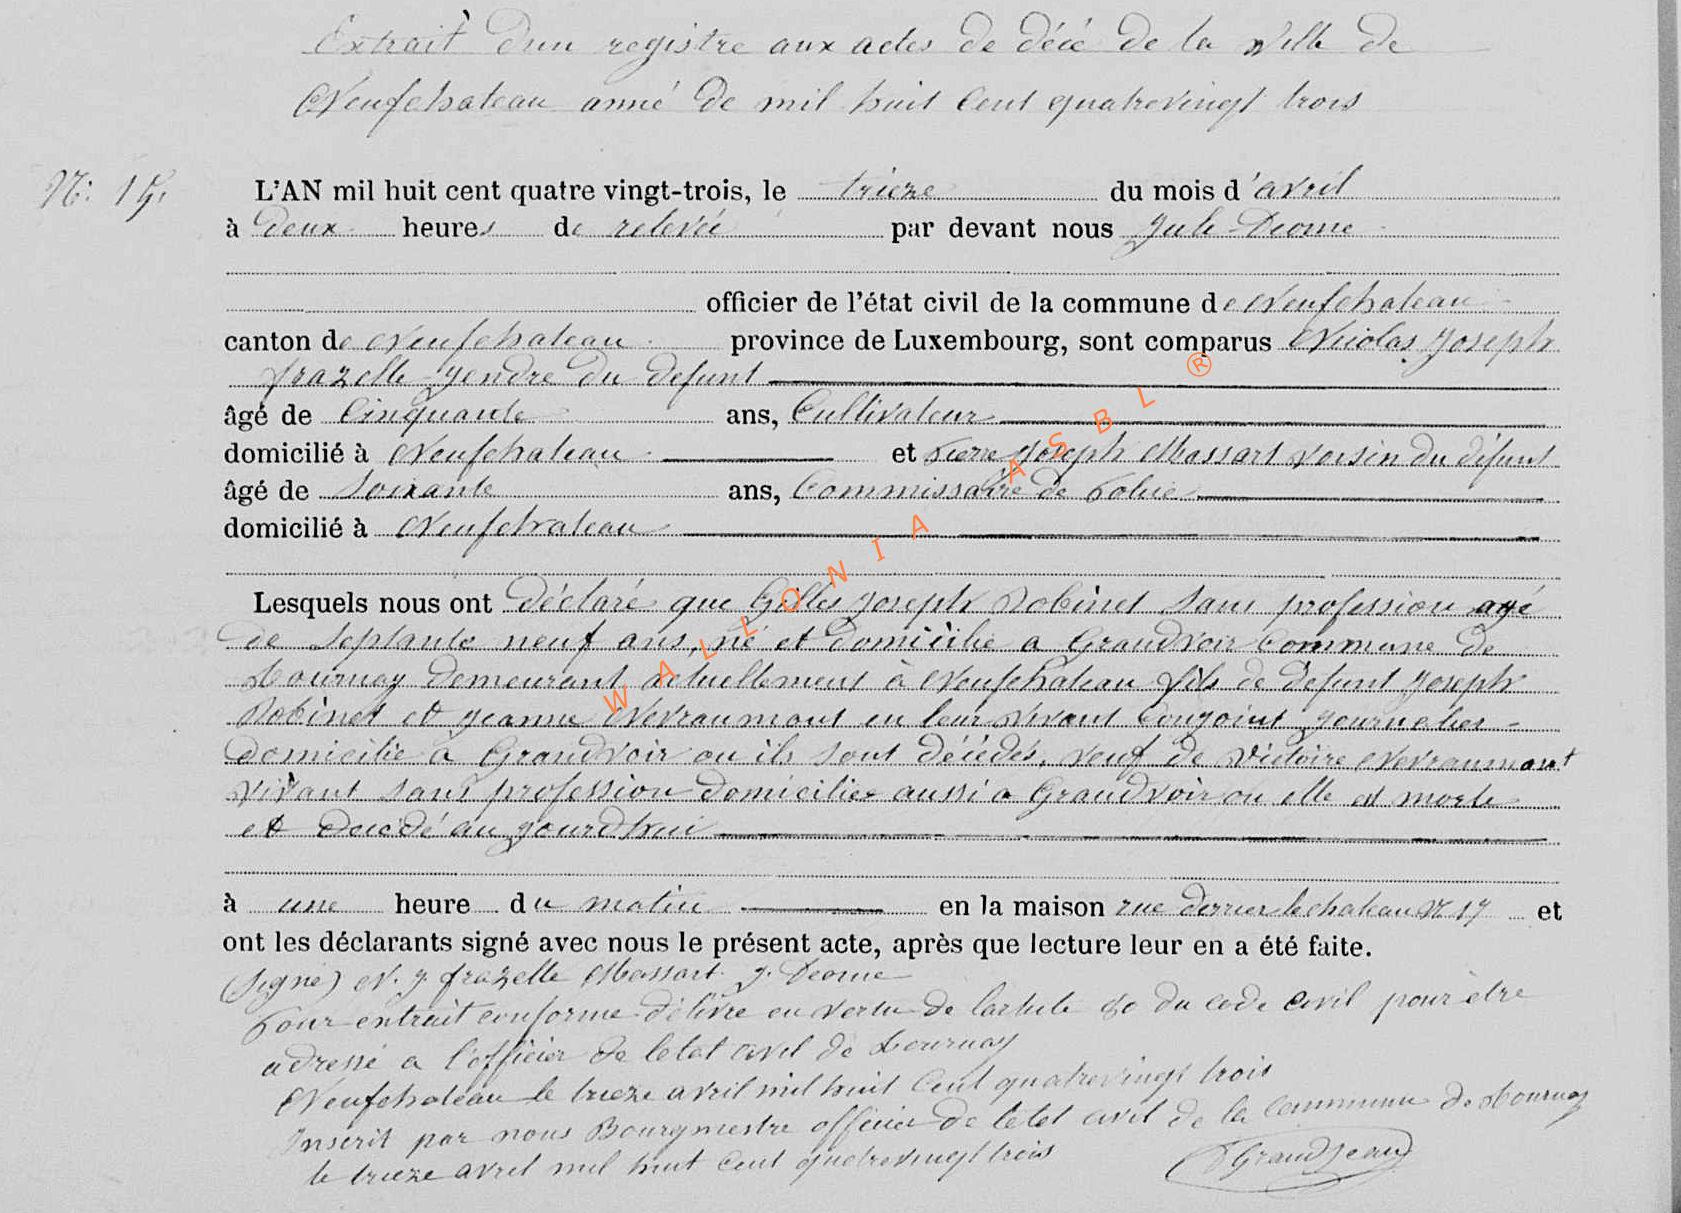 Extrait dun registre aux actes de décé de la ville de
Neufchateau anné de mil huit cent quatrevingt trois
N: 15.
L'AN mil huit cent quatre vingt-trois, le trieze du mois d'avril
à deux heures de relevée par devant nous Jule Deome
officier de l'état civil de la commune de Neufchateau
canton de Neufchateau province de Luxembourg, sont comparus Nicolas Joseph
frazelle gendre du defunt
âgé de Cinquante ans, Cultivateur
domicilié à Neufchateau et Pierre Joseph Massart voisin du défunt
âgé de Soixante ans, Commissaire de Police
domicilié à Neufchateau
Lesquels nous ont déclaré que Gilles Joseph Robinet Sans profession agé
de Septante neuf ans, né et domicilié a Grandvoir Commune de
Tournay demeurant actuellement à Neufchateau fils de defunt Joseph
Robinet et Jeanne Nevraumont en leur vivant Conjoint journalier
domicilie a Grandvoir ou ils sont décédés, veuf de Victoire Nevraumont
vivant sans profession domicilier aussi a Grandvoir ou elle est morte
et decédé au jourdhui
à une heure du matin en la maison rue derrier le chateau N 17 et
ont les déclarants signé avec nous le présent acte, après que lecture leur en a été faite.
(Signé) N. J. frazelle Massart J. Deome
Pour extrait conforme délivré en vertu de lartile 80 du code civil pour être
adressé a l'officier de letat civil de Tournay
Neufchateau le trieze avril mil huit Cent quatrevingt trois
Inscrit par nous Bourgmestre officier de letat civil de la Commune de Tournay
le trieze avril mil huit Cent quatrevingt trois
Grandjean
WALLONIA ASBL ®